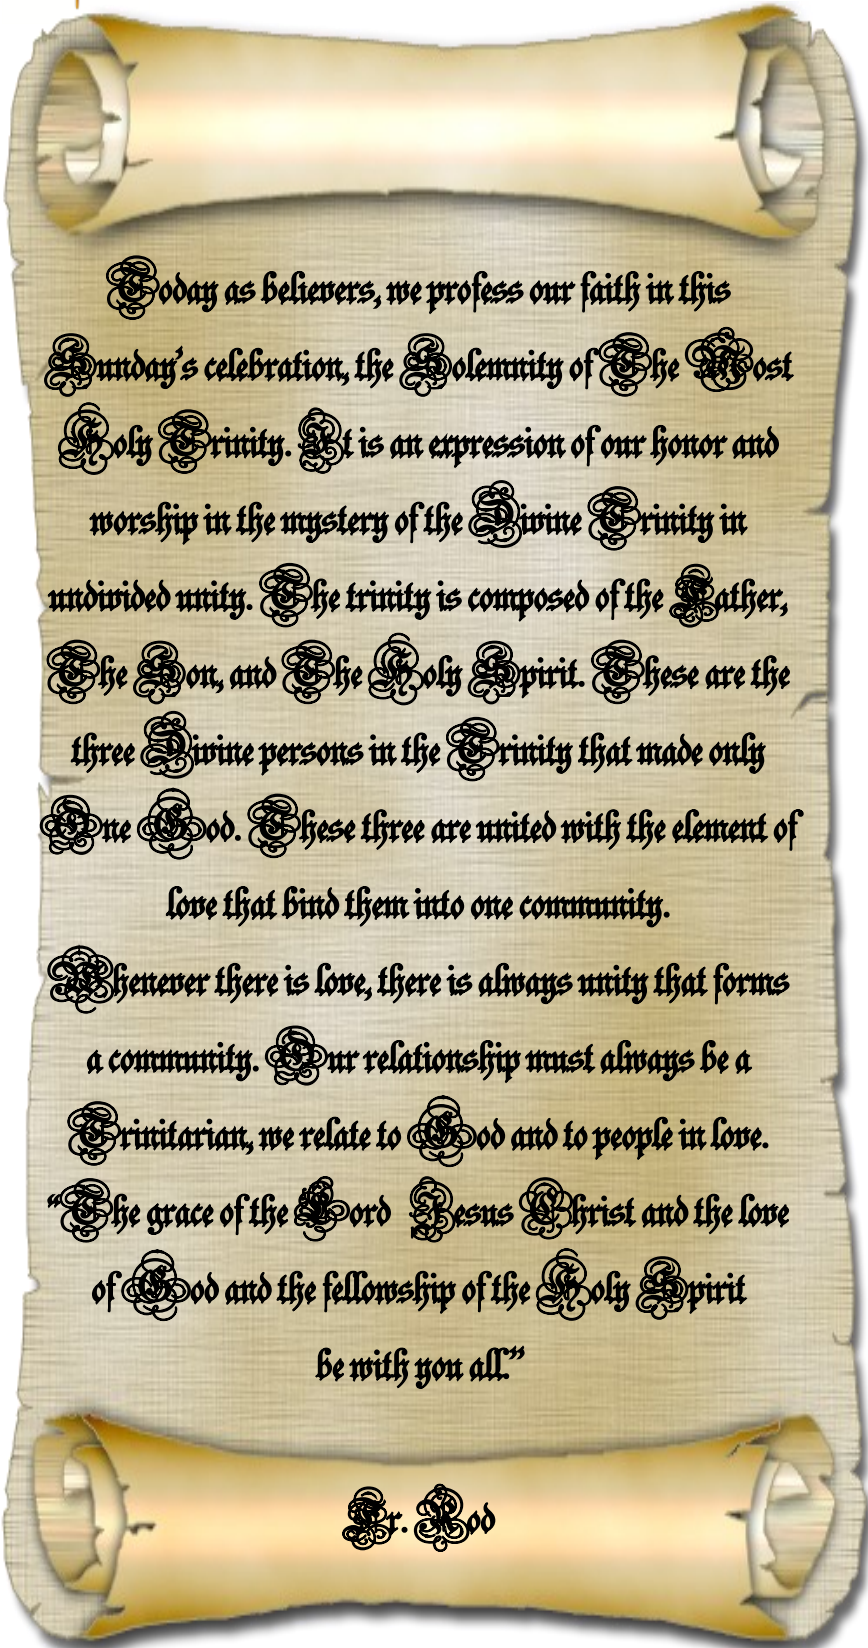 Today as believers, we profess our faith in this
Sunday's celebration, the Solemnity of The Most
Holy Trinity. It is an expression of our honor and
worship in the mystery of the Divine Trinity in
undivided unity. The trinity is composed of the Father,
The Son, and The Holy Spirit. These are the
three Divine persons in the Trinity that made only
One God. These three are united with the element of
love that bind them into one community.
Whenever there is love, there is always unity that forms
a community. Our relationship must always be a
Trinitarian, we relate to God and to people in love.
“The grace of the Lord Jesus Christ and the love
of God and the fellowship of the Holy Spirit
be with you all.”
Fr. Rod